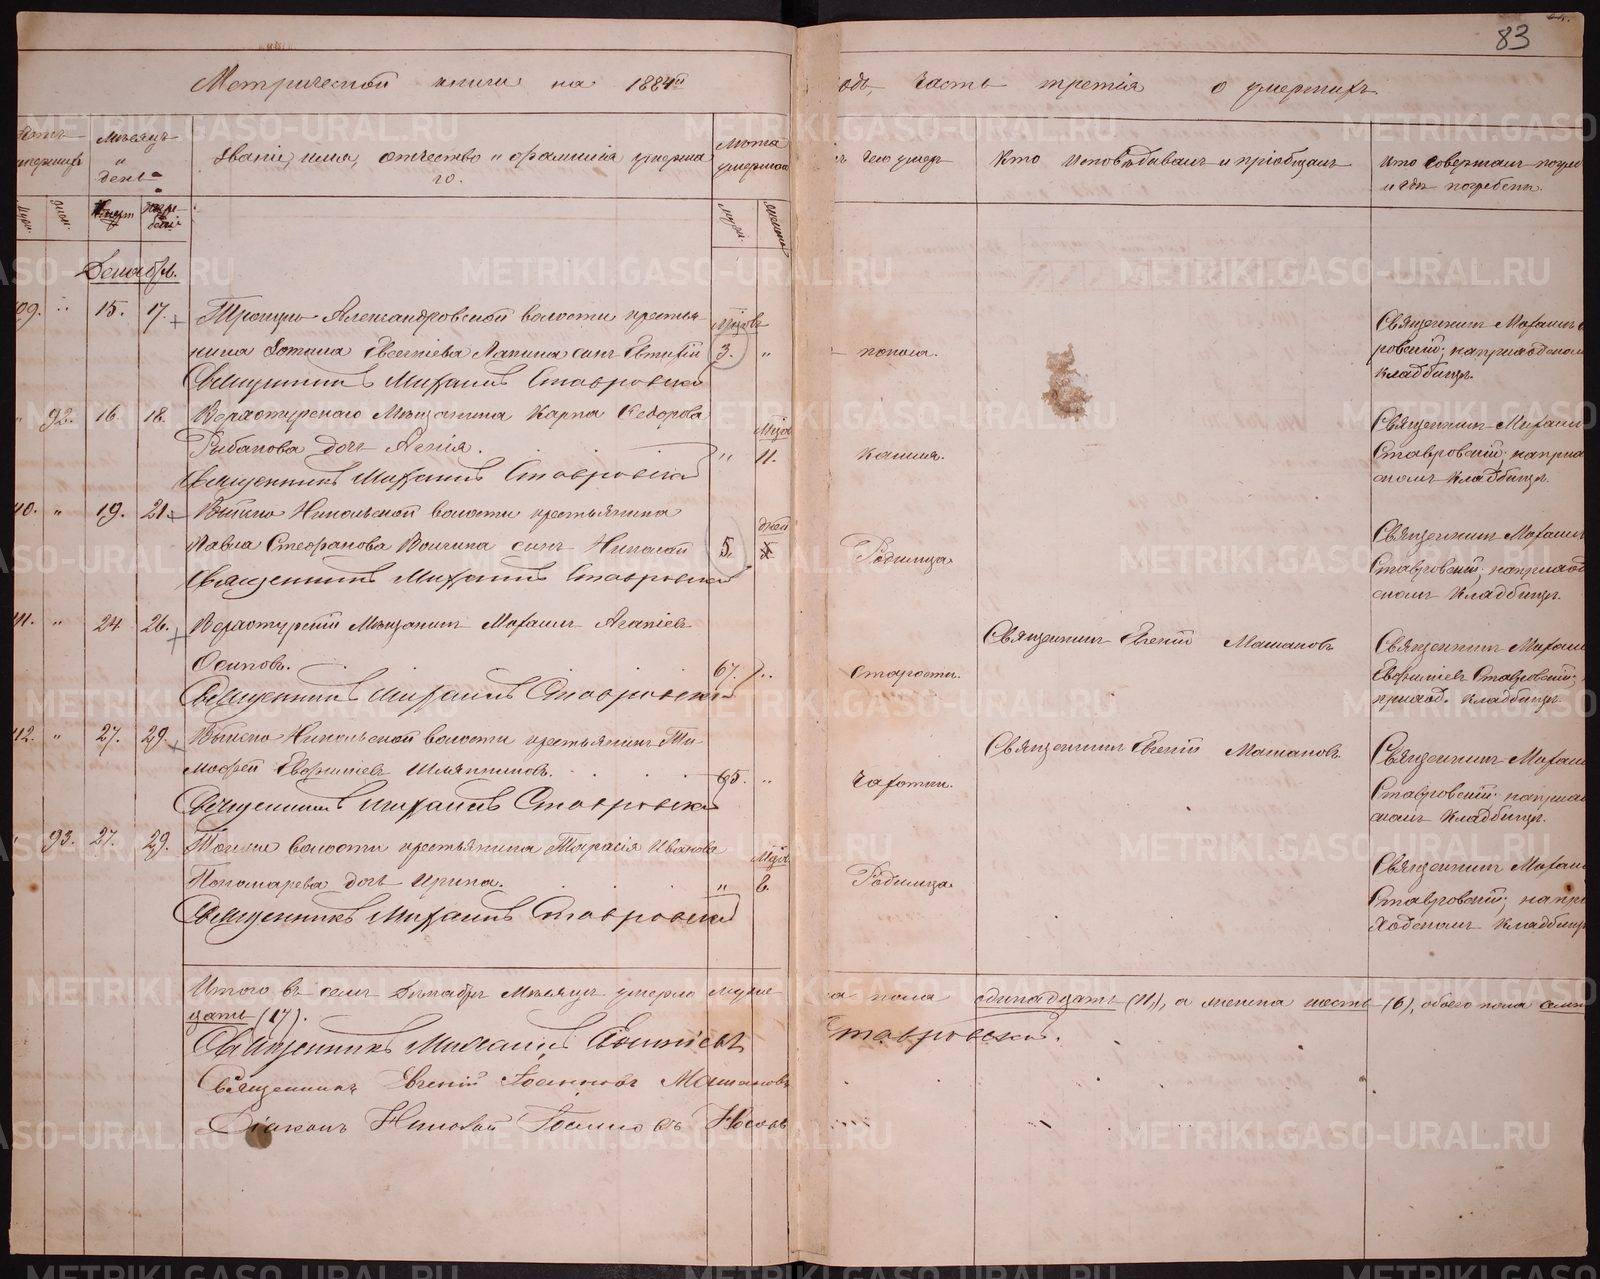 83
Метрической книги на 1884й годъ, часть третія о умершихъ
Мѣсяцъ и день
Званіе, имя, отчество и фамилія умершаго.
Лѣта умершаго
чего умеръ
Кто исповѣдывалъ и пріобщалъ
Кто совершалъ погре
и гдѣ погребенъ.
Декабрь.
15. 17. Троицко Александровской волости крестья-
нина Евгеніева Лапина сынъ 3. " поноса.
Священникъ Михаилъ Ставровскій
Священникъ Михаилъ
ровскій; на приходском
кладбищѣ.
" 92. 16. 18. Верхотурского Мѣщанина Карпа Федорова
Рыбакова дочь Агнія. " 11. кашля.
Священникъ Михаилъ Ставровскій
Священникъ Михаил
Ставровскій; на прихо
скомъ кладбищѣ.
40. " 19. 21. Выйско Никольской волости крестьянина
дней
Павла Стефанова сынъ Николай 5. Родимца
Священникъ Михаилъ Ставровскій
Священникъ Михаил
Ставровскій; на приход
скомъ кладбищѣ.
41. " 24. 26. Верхотурскій Мѣщанинъ Михаилъ Агапіевъ
Осиповъ. 67. " Старости.
Священникъ Михаилъ Ставровскій
Священникъ Евгеній Машановъ
Священникъ Михаил
Евфиміевъ Ставровскій;
приход. кладбищѣ.
42. " 27. 29. Выйско Никольской волости крестьянинъ Ти-
мофей Евфиміевъ Шляпниковъ. 65. " Чахотки.
Священникъ Михаилъ Ставровскій
Священникъ Евгеній Машановъ
Священникъ Михаил
Ставровскій; на приход
скомъ кладбищѣ.
93. 27. 29. Тойже волости крестьянина Тарасія Иванова
Пономарева дочь Ирина. " Родимца
Священникъ Михаилъ Ставровскій
Священникъ Михаил
Ставровскій; на при
ходскомъ кладбищѣ
Итого въ семъ Декабрѣ Мѣсяцѣ умерло муже- ка пола одинадцать (11), а женска шесть (6), обоего пола семна
цать (17).
Священникъ Михаилъ Евфиміевъ Ставровскій.
Священникъ Евгеній Іоанновъ Машановъ
Діаконъ Николай Іоанновъ Носовъ
METRIKI.GASO-URAL.RU